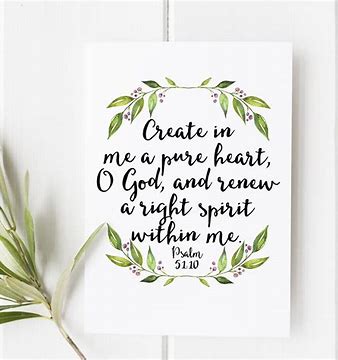 Create in
me a pure heart,
O God, and renew
a right spirit
within me.
Psalm
51:10